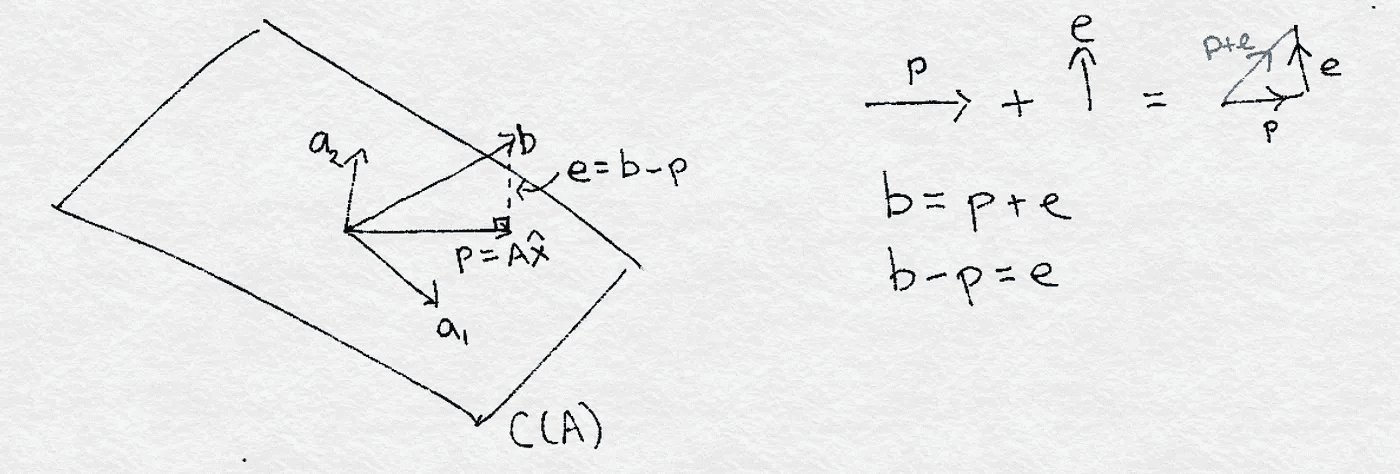 a₂
b
e = b - p
p = Ax̂
a₁
C(A)
p + e = p+e e p
b = p + e
b - p = e